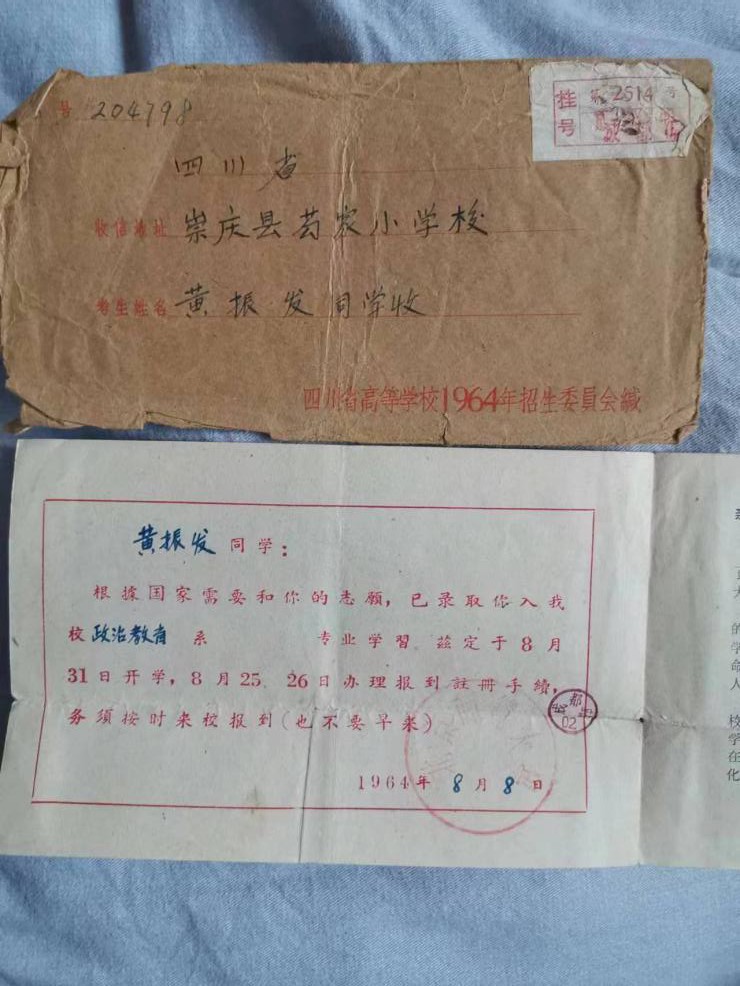 号 204798
挂号 第 2514 号
四川省
收信地址 崇庆县芶家小学校
考生姓名 黄振发同学收
四川省高等学校1964年招生委員会缄
黄振发同学：
根據国家需要和你的志願，已录取你入我
校政治教育系 专业学習。茲定于8月
31日开学，8月25、26日办理报到註冊手續，
务須按时来校报到（也不要早来）
1964年8月8日
02
的
学
命
人
校
学
在
化